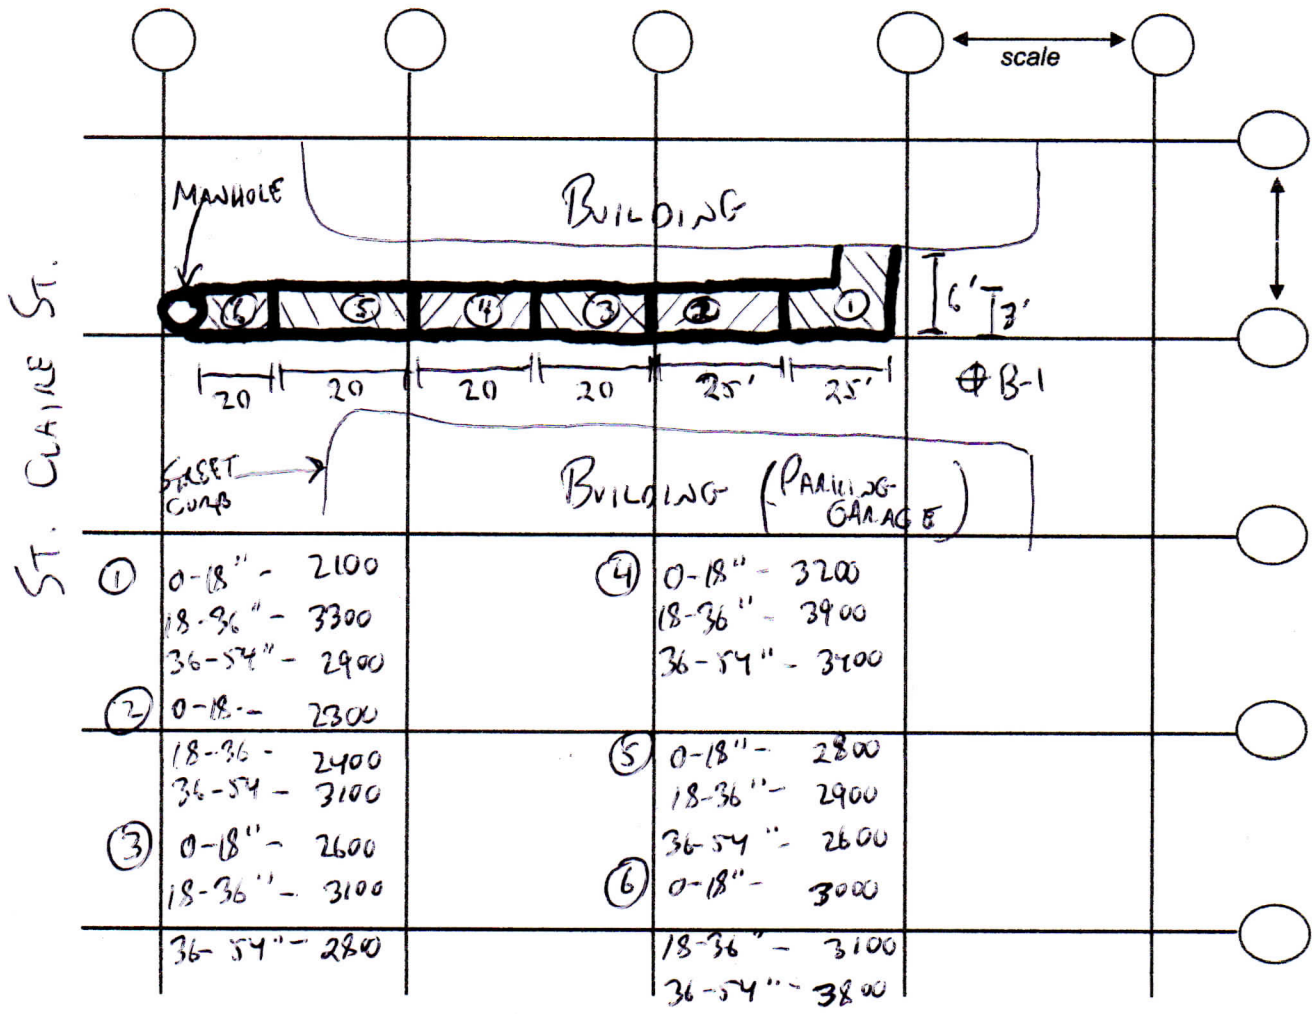 scale
MANHOLE
BUILDING
6 5 4 3 2 1
6' 3'
20 20 20 20 25' 25'
B-1
ST. CLAIRE ST.
STREET
CURB
BUILDING (PARKING
GARAGE)
1 0-18" - 2100
18-36" - 3300
36-54" - 2900
2 0-18 - 2300
18-36 - 2400
36-54 - 3100
3 0-18" - 2600
18-36" - 3100
36-54" - 2800
4 0-18" - 3200
18-36" - 3900
36-54" - 3400
5 0-18" - 2800
18-36" - 2900
36-54" - 2600
6 0-18" - 3000
18-36" - 3100
36-54" - 3800